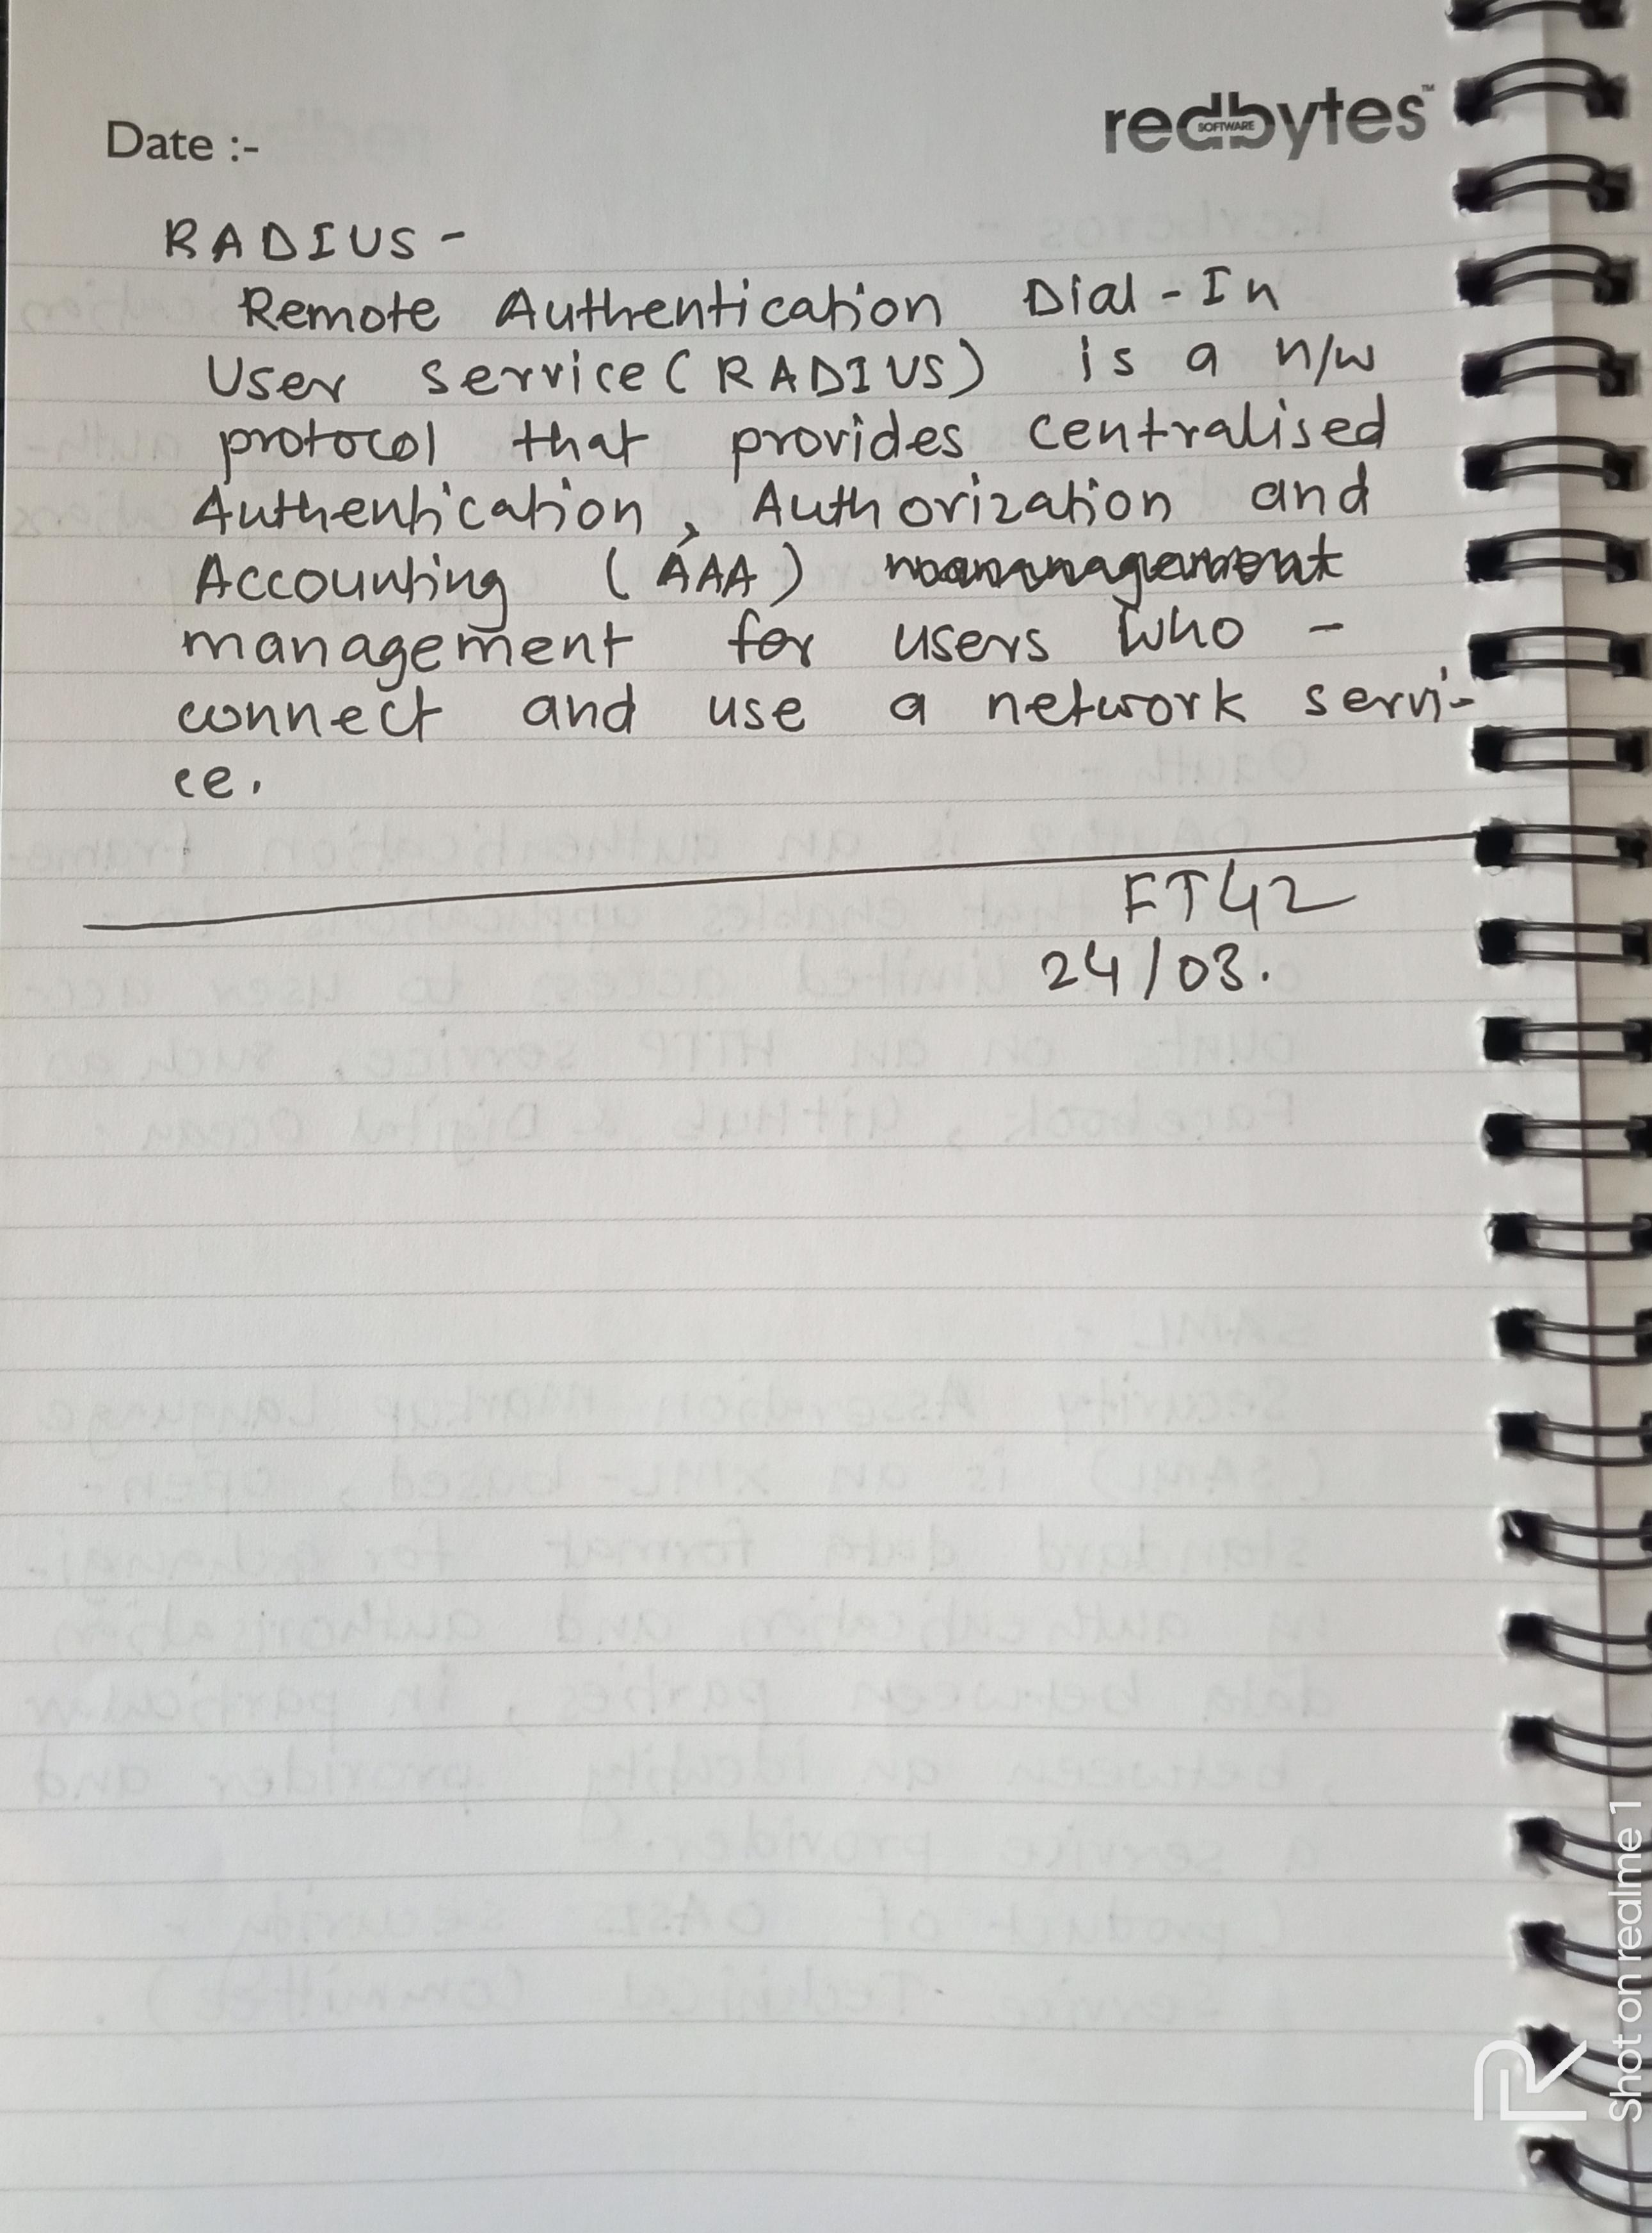 Date :-
redbytes™
SOFTWARE
RADIUS -
Remote Authentication Dial-In
User service (RADIUS) is a n/w
protocol that provides centralised
Authentication, Authorization and
Accounting (AAA)
management for users who -
connect and use a network servi-
ce.
FT42
24/03.
Shot on realme 1